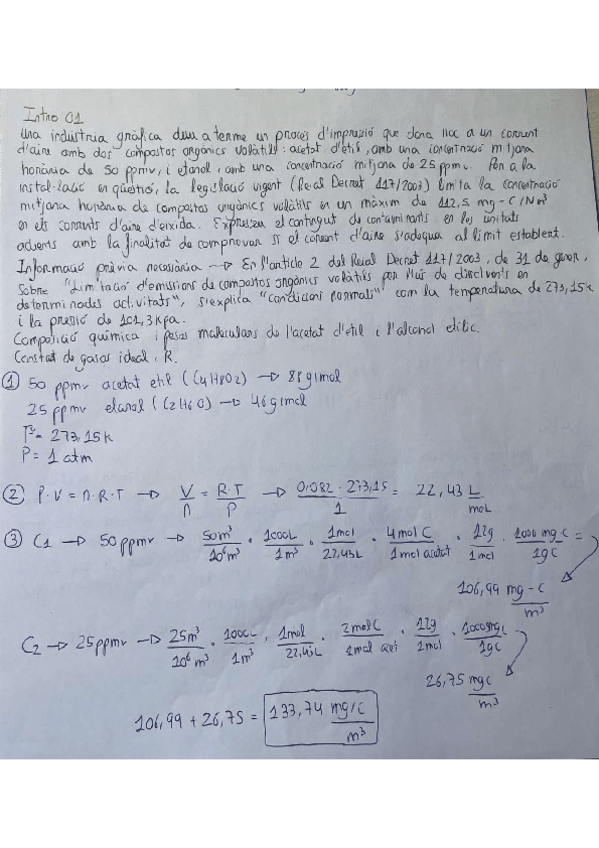 Intro 01
Una indústria gràfica duu a terme un procés d'impressió que dona lloc a un corrent
d'aire amb dos compostos orgànics volàtils: acetat d'etil, amb una concentració mitjana
horària de 50 ppmv, i etanol, amb una concentració mitjana de 25 ppmv. Per a la
instal·lació en qüestió, la legislació vigent (Reial Decret 117/2003) limita la concentració
mitjana horària de compostos orgànics volàtils en un màxim de 112,5 mg-C/Nm³
en els corrents d'aire d'eixida. Expresseu el contingut de contaminants en les unitats
adients amb la finalitat de comprovar si el corrent d'aire s'adequa al límit establert.
Informació prèvia necessària → En l'article 2 del Reial Decret 117/2003, de 31 de gener,
sobre "Limitació d'emissions de compostos orgànics volàtils per l'ús de dissolvents en
determinades activitats", s'explica "condicions normals" com la temperatura de 273,15k
i la pressió de 101,3kpa.
Composició química i pesos moleculars de l'acetat d'etil i l'alcohol etílic.
Constat de gasos ideal, R.
① 50 ppmv acetat etil (C4H8O2) → 88 g/mol
25 ppmv etanol (C2H6O) → 46 g/mol
Tª = 273,15k
P = 1 atm
② P·V = n·R·T → V/n = R·T/P → 0.082 · 273,15/1 = 22,43 L/mol
③ C1 → 50ppmv → 50m³/10⁶m³ · 1000L/1m³ · 1mol/22,43L · 4mol C/1mol acetat · 12g/1mol · 1000 mg C/1gC =
106,99 mg-C/m³
C2 → 25ppmv → 25m³/10⁶m³ · 1000L/1m³ · 1mol/22,43L · 2molC/1mol acet · 12g/1mol · 1000mgC/1gC
26,75 mgC/m³
106,99 + 26,75 = 133,74 mg/C/m³